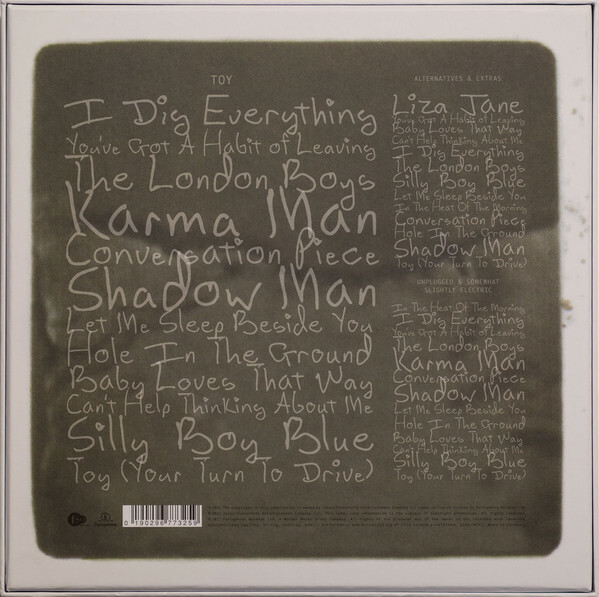 TOY
I Dig Everything
You've Got A Habit of Leaving
The London Boys
Karma Man
Conversation Piece
Shadow Man
Let Me Sleep Beside You
Hole In The Ground
Baby Loves That Way
Can't Help Thinking About Me
Silly Boy Blue
Toy (Your Turn To Drive)
ALTERNATIVES & EXTRAS
Liza Jane
You've Got A Habit of Leaving
Baby Loves That Way
Can't Help Thinking About Me
I Dig Everything
The London Boys
Silly Boy Blue
Let Me Sleep Beside You
In The Heat Of The Morning
Conversation Piece
Hole In The Ground
Shadow Man
Toy (Your Turn To Drive)
UNPLUGGED & SOMEWHAT
SLIGHTLY ELECTRIC
In The Heat Of The Morning
I Dig Everything
You've Got A Habit of Leaving
The London Boys
Karma Man
Conversation Piece
Shadow Man
Let Me Sleep Beside You
Hole In The Ground
Baby Loves That Way
Can't Help Thinking About Me
Silly Boy Blue
Toy (Your Turn To Drive)
0 190296 773259